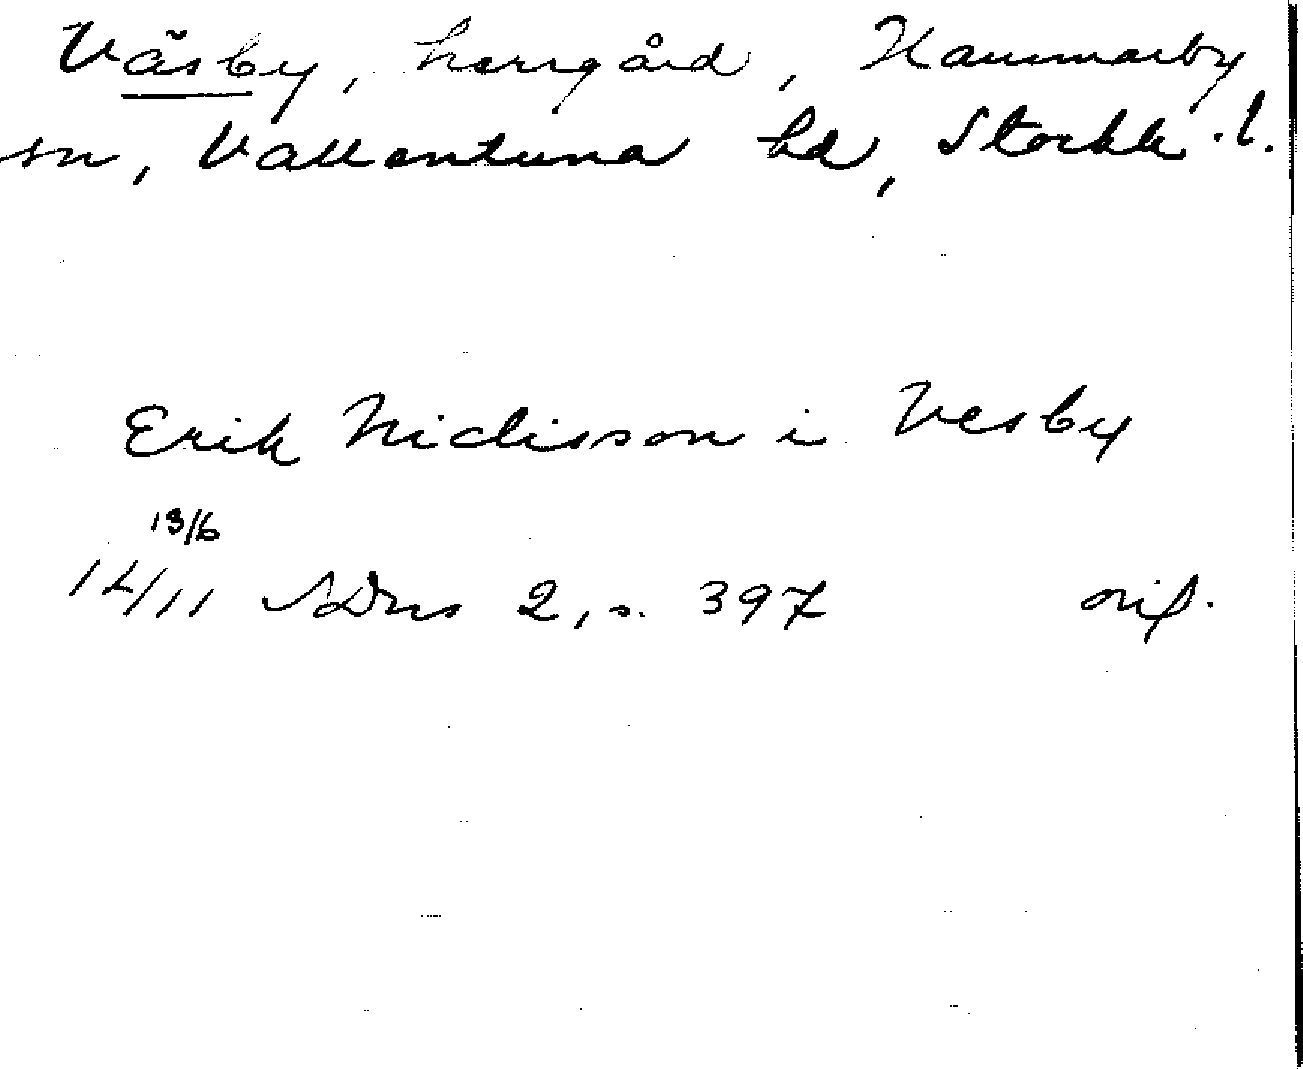 Väsby, herrgård, Hammarby
sn, Vallentuna hd, Stockh. l.
Erik Niclisson i Vesby
13/6
14/11 SDns 2, s. 397 orif.